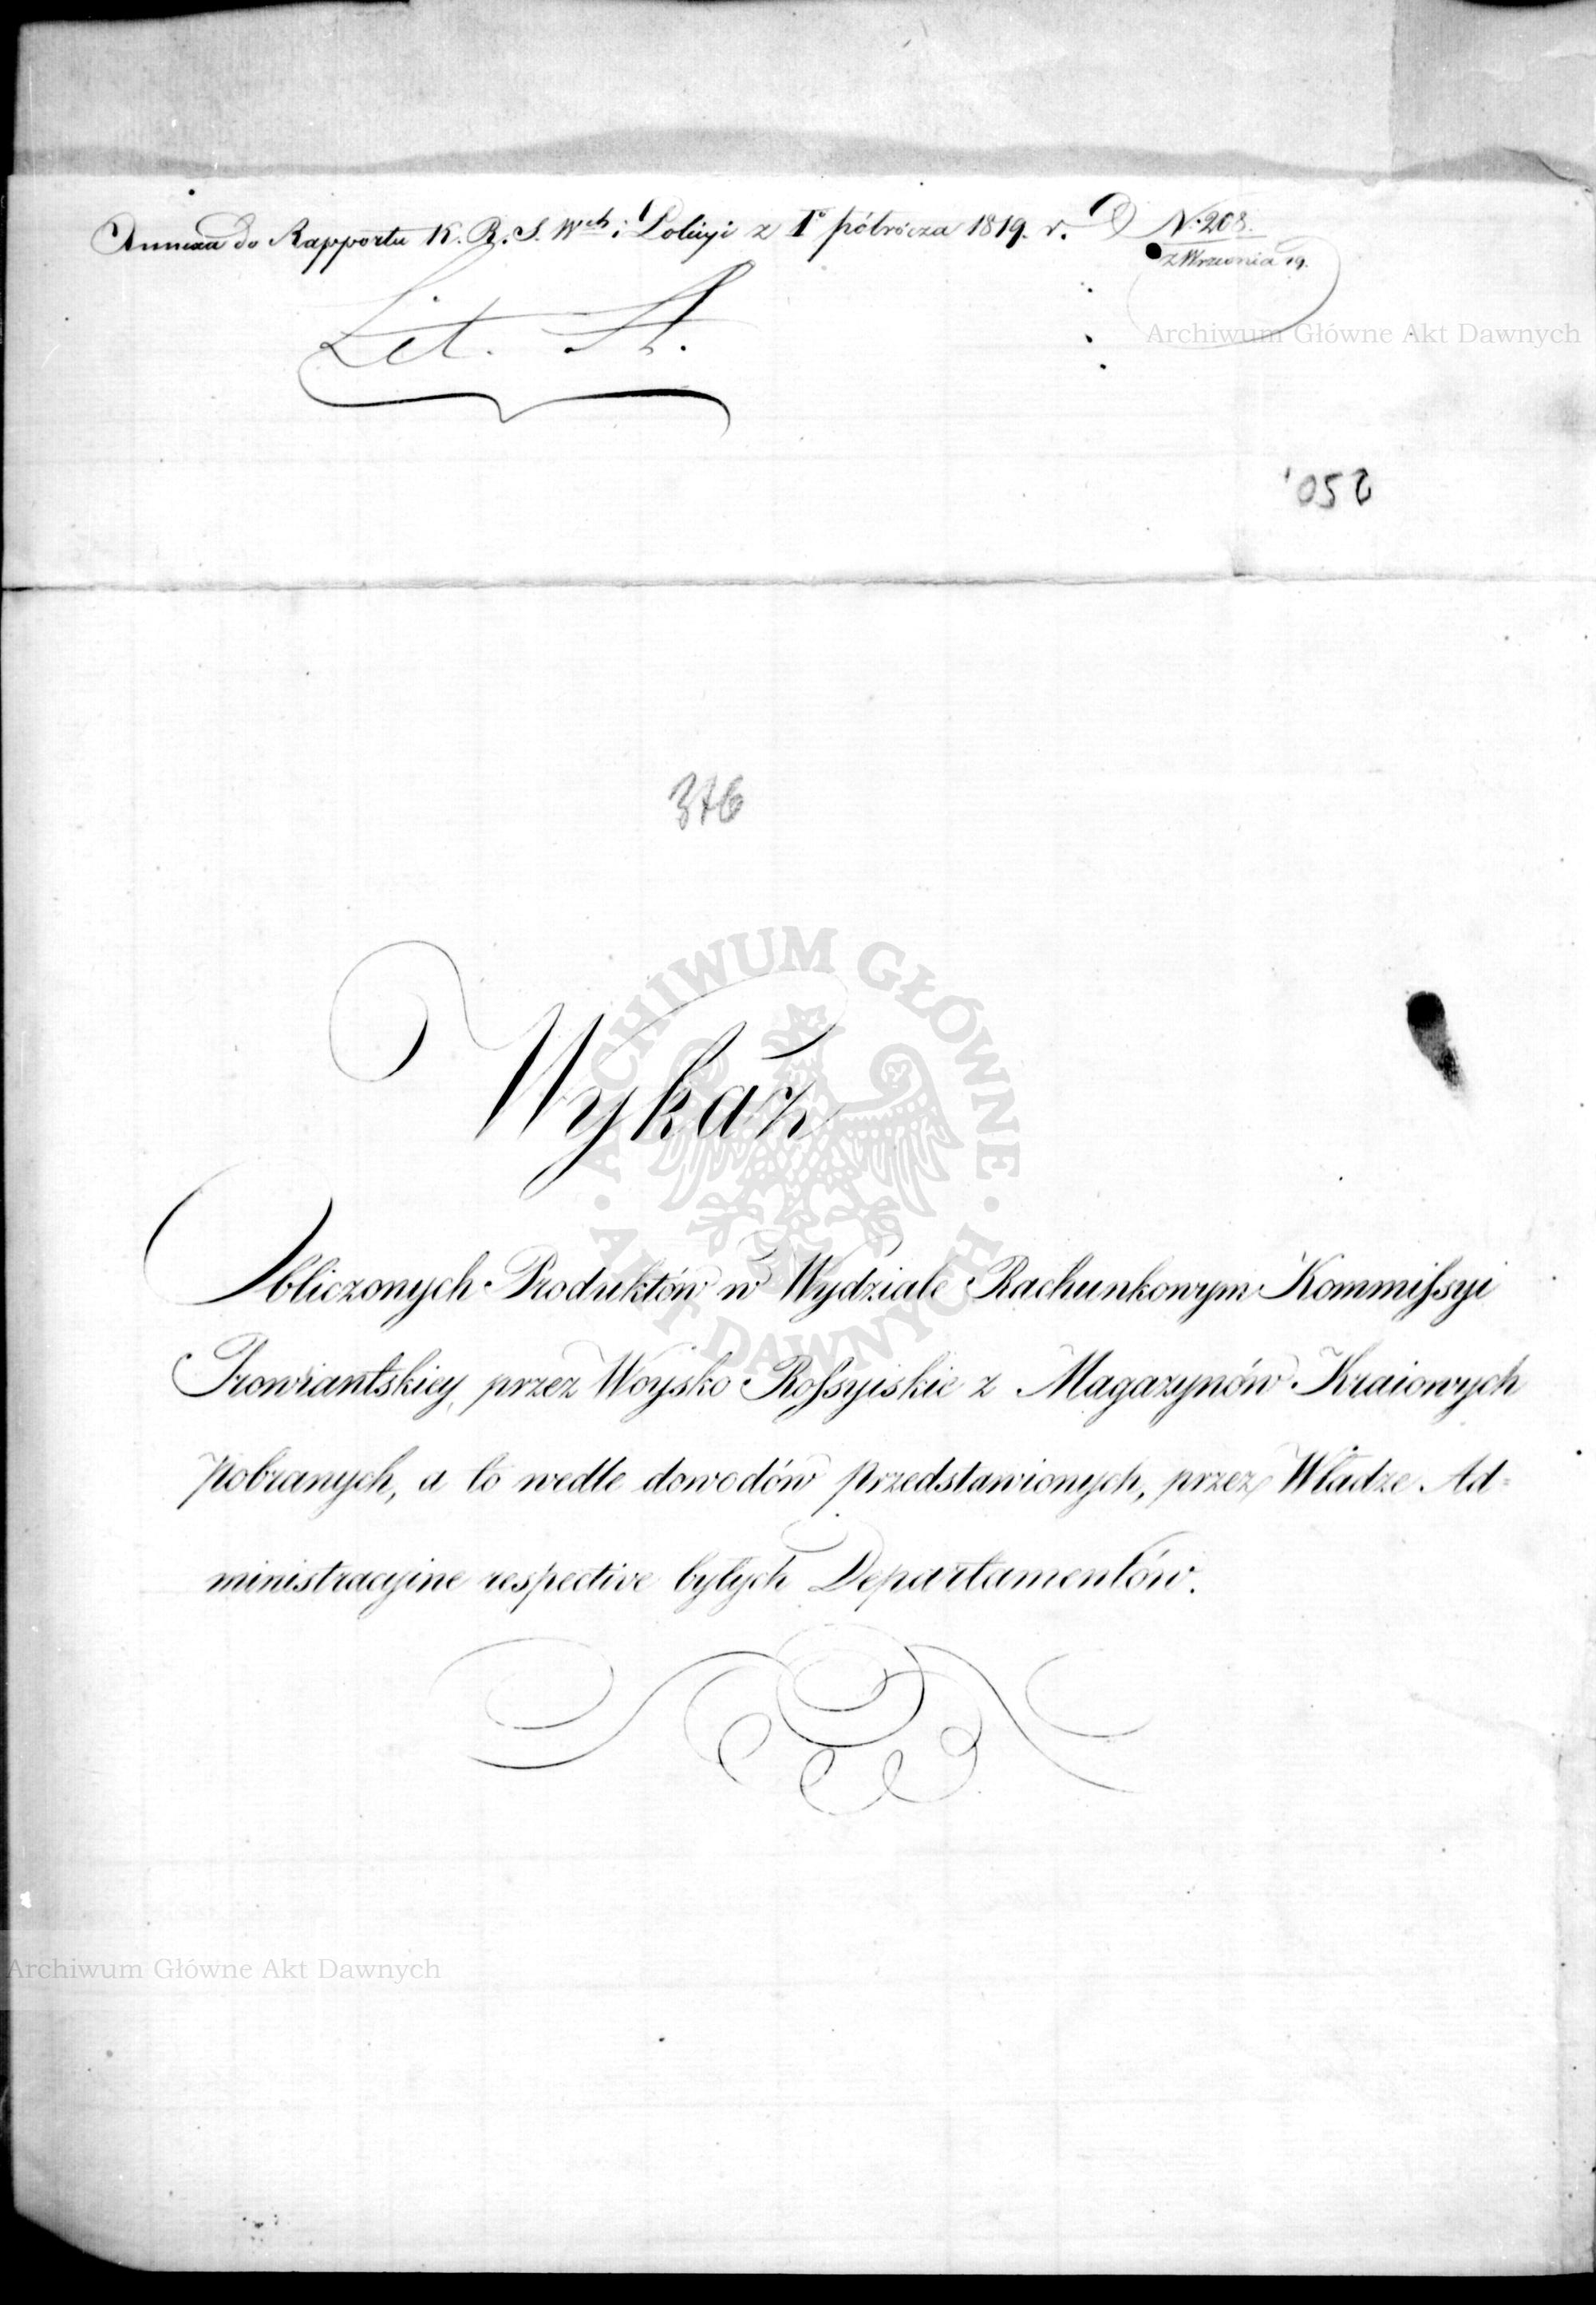 Annexa do Rapportu K. R. S. Wch i Policyi z Iº półrocza 1819. r.
N. 208.
z Wrzesnia 19.
Archiwum Główne Akt Dawnych
Lit. A.
250.
376
ARCHIWUM GŁÓWNE · AKT DAWNYCH ·
Wykaz
Obliczonych Produktów w Wydziale Rachunkowym Kommiſsyi
Prowiantskiey, przez Woysko Roſsyiskie z Magazynów Kraiowych
pobranych, a to wedle dowodów przedstawionych, przez Władze Ad=
ministracyine respective byłych Departamentów.
Archiwum Główne Akt Dawnych